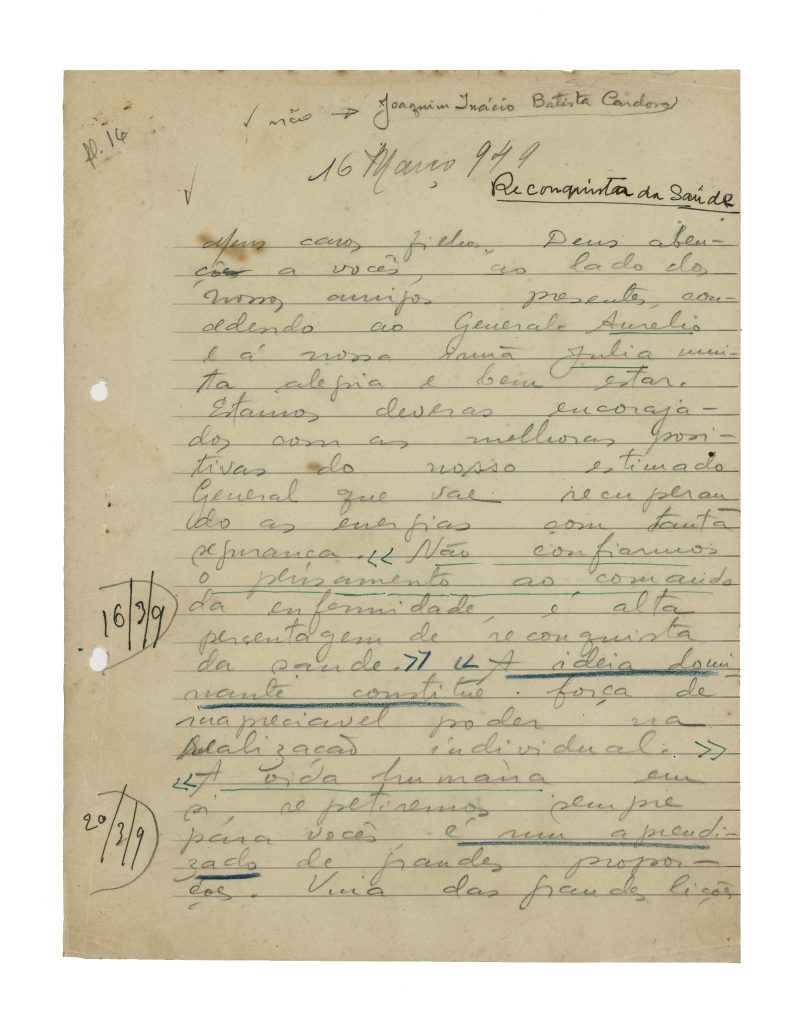 ✓ não → Joaquim Inácio Batista Cardoso
fl. 14
16 Março 949
Reconquista da Saúde
Meus caros filhos, Deus aben-
çõe a vocês, ao lado dos
nossos amigos presentes, con-
cedendo ao General Aurelio
e á nossa irmã Julia mui-
ta alegria e bem estar.
Estamos deveras encoraja-
dos com as melhoras posi-
tivas do nosso estimado
General que vae recuperan
do as energias com tanta
segurança. « Não confiarmos
o pensamento ao comando
da enfermidade, é alta
16/3/9
percentagem de reconquista
da saude. » « A ideia domi-
nante constitue força de
inapreciavel poder na
Realização individual. »
« A vida humana em
si, repetiremos sempre
20/3/9
para vocês é um aprendi-
zado de grandes propor-
ções. Uma das grandes lições